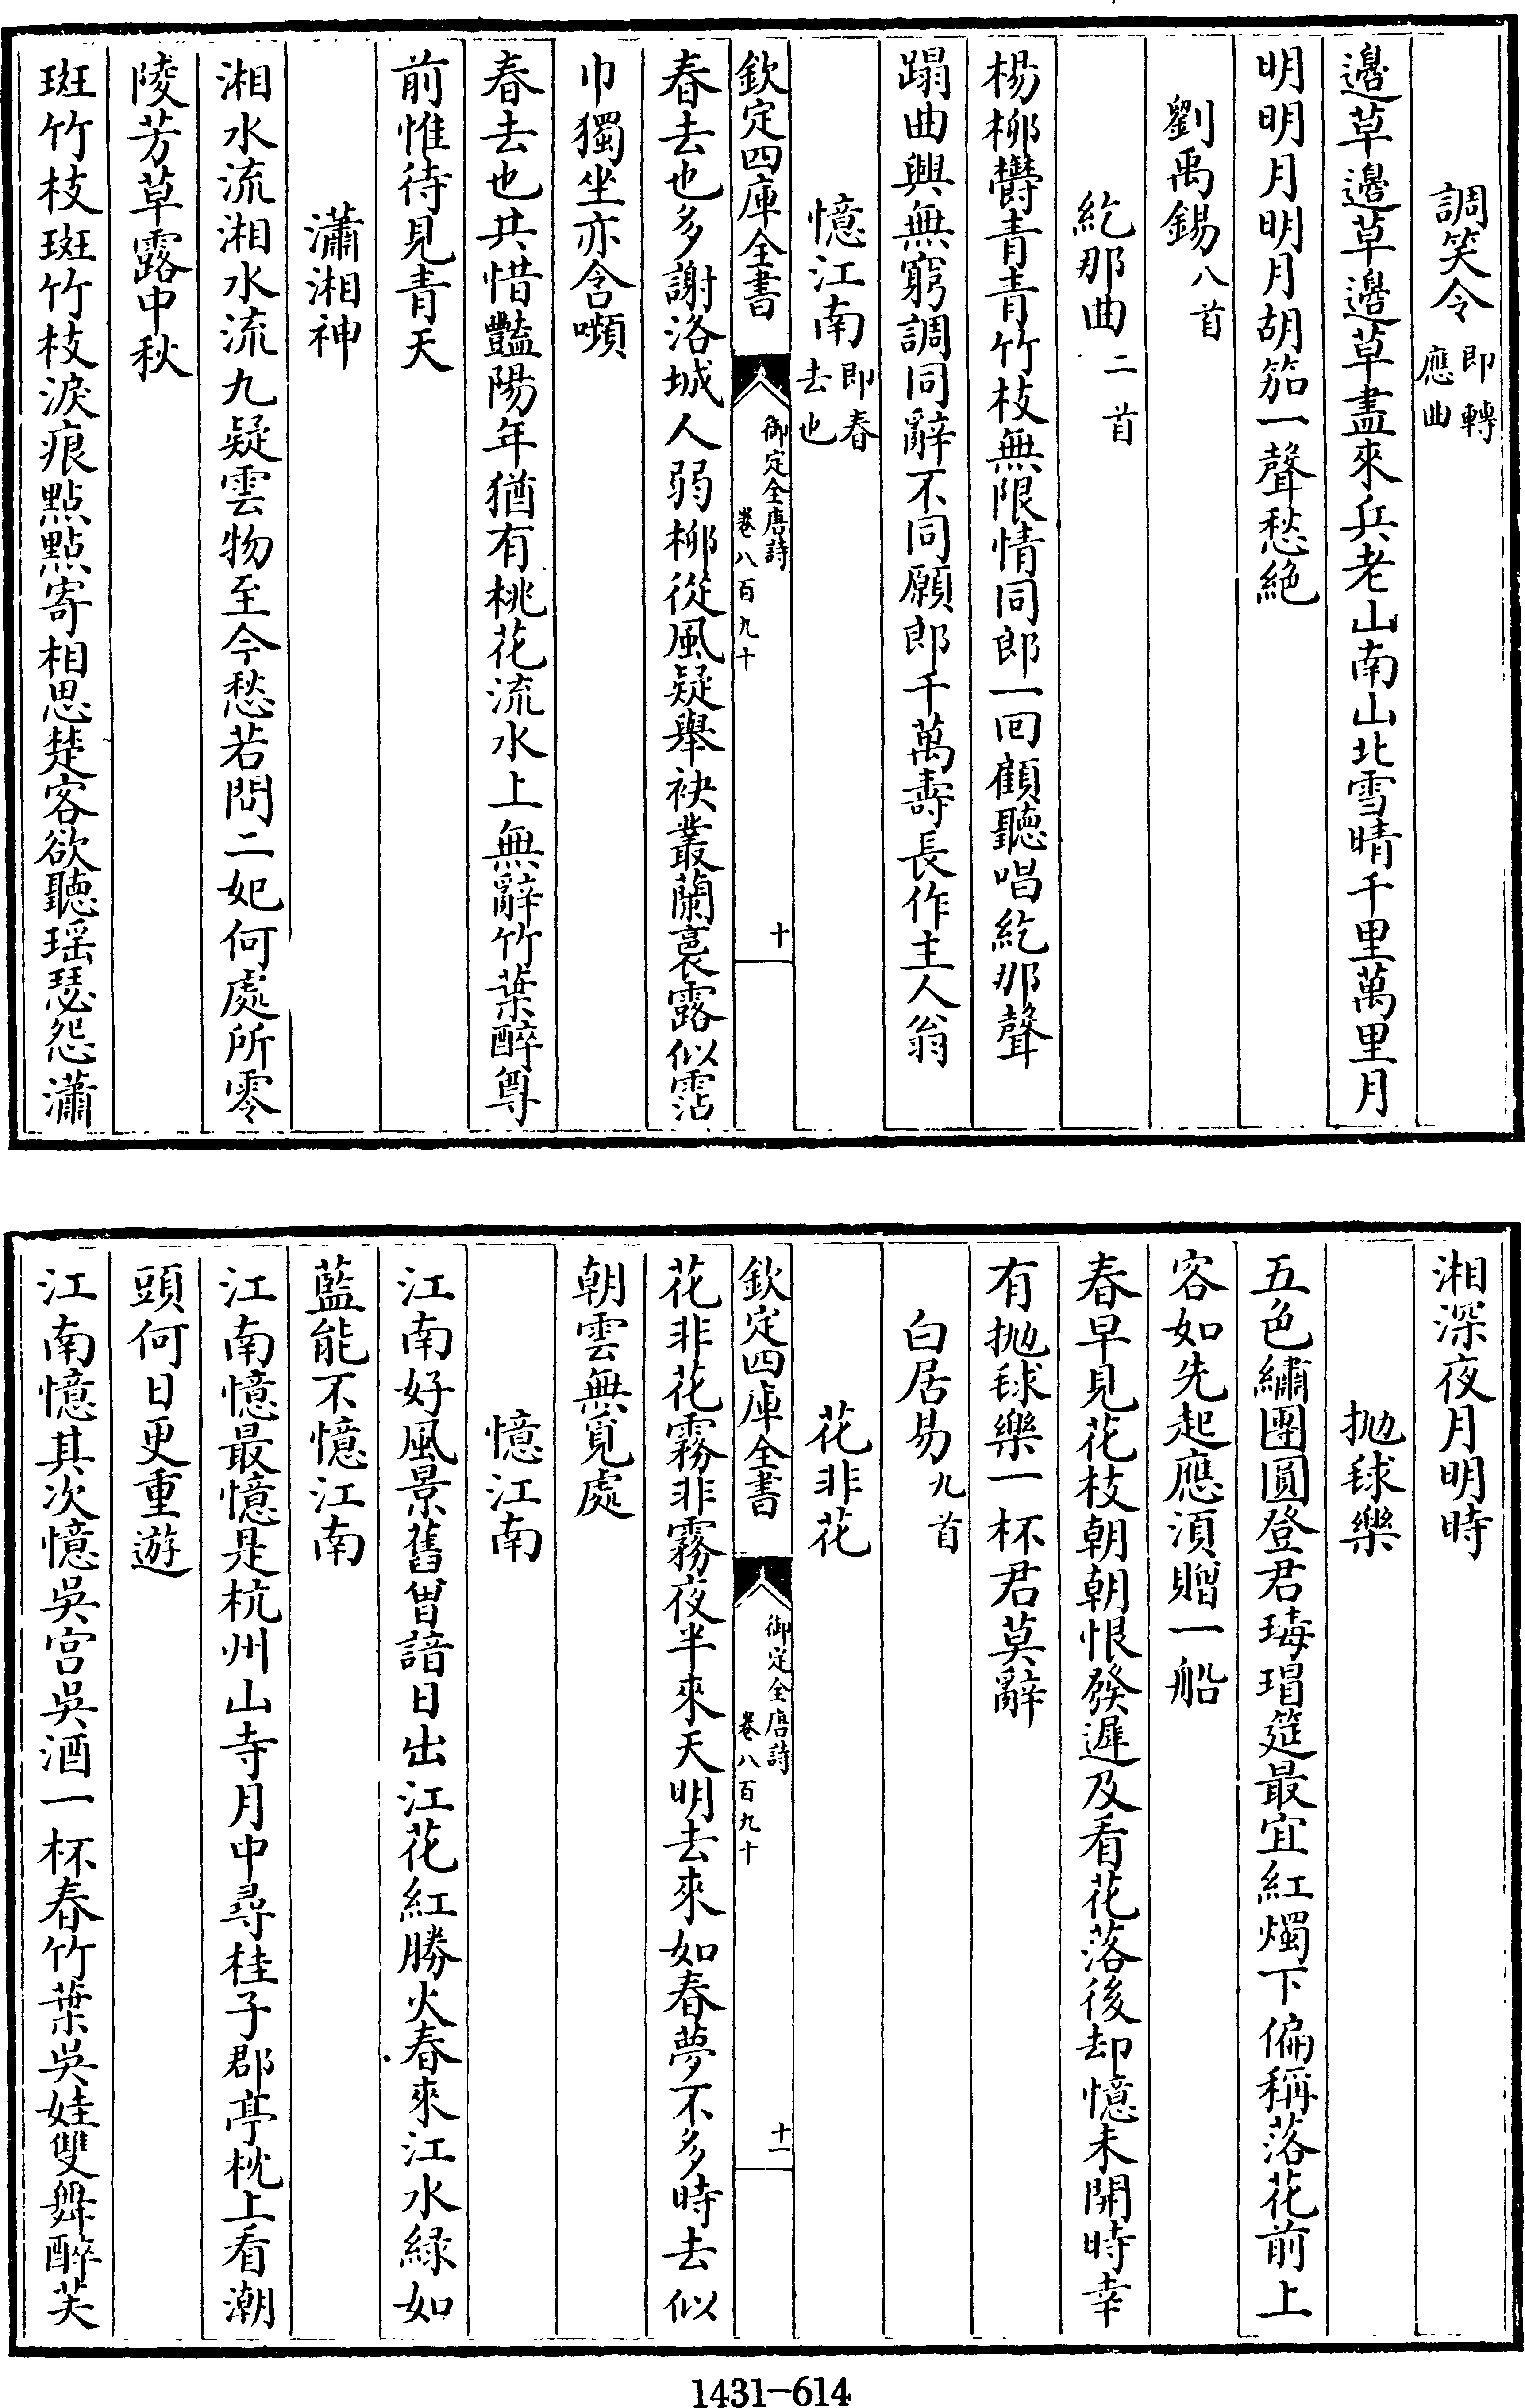 調笑令即轉應曲
邉草邉草邉草盡來兵老山南山北雪晴千里萬里月
明明月明月胡笳一聲愁絶
劉禹錫八首
紇那曲二首
楊柳鬱青青竹枝無限情同郎一回顧聽唱紇那聲
蹋曲興無窮調同辭不同願郎千萬壽長作主人翁
憶江南即春去也
欽定四庫全書
御定全唐詩
卷八百九十
十
春去也多謝洛城人弱柳從風疑舉袂叢蘭裛露似霑
巾獨坐亦含嚬
春去也共惜豔陽年猶有桃花流水上無辭竹葉醉尊
前惟待見青天
瀟湘神
湘水流湘水流九疑雲物至今愁若問二妃何處所零
陵芳草露中秋
斑竹枝斑竹枝淚痕點點寄相思楚客欲聽瑶瑟怨瀟
湘深夜月明時
抛毬樂
五色繡團圓登君瑇瑁筵最宜紅燭下偏稱落花前上
客如先起應須贈一船
春早見花枝朝朝恨發遲及看花落後却憶未開時幸
有抛毬樂一杯君莫辭
白居易九首
花非花
欽定四庫全書
御定全唐詩
卷八百九十
十一
花非花霧非霧夜半來天明去來如春夢不多時去似
朝雲無覓處
憶江南
江南好風景舊曾諳日出江花紅勝火春來江水緑如
藍能不憶江南
江南憶最憶是杭州山寺月中尋桂子郡亭枕上看潮
頭何日更重遊
江南憶其次憶吳宫吳酒一杯春竹葉吳娃雙舞醉芙
1431-614